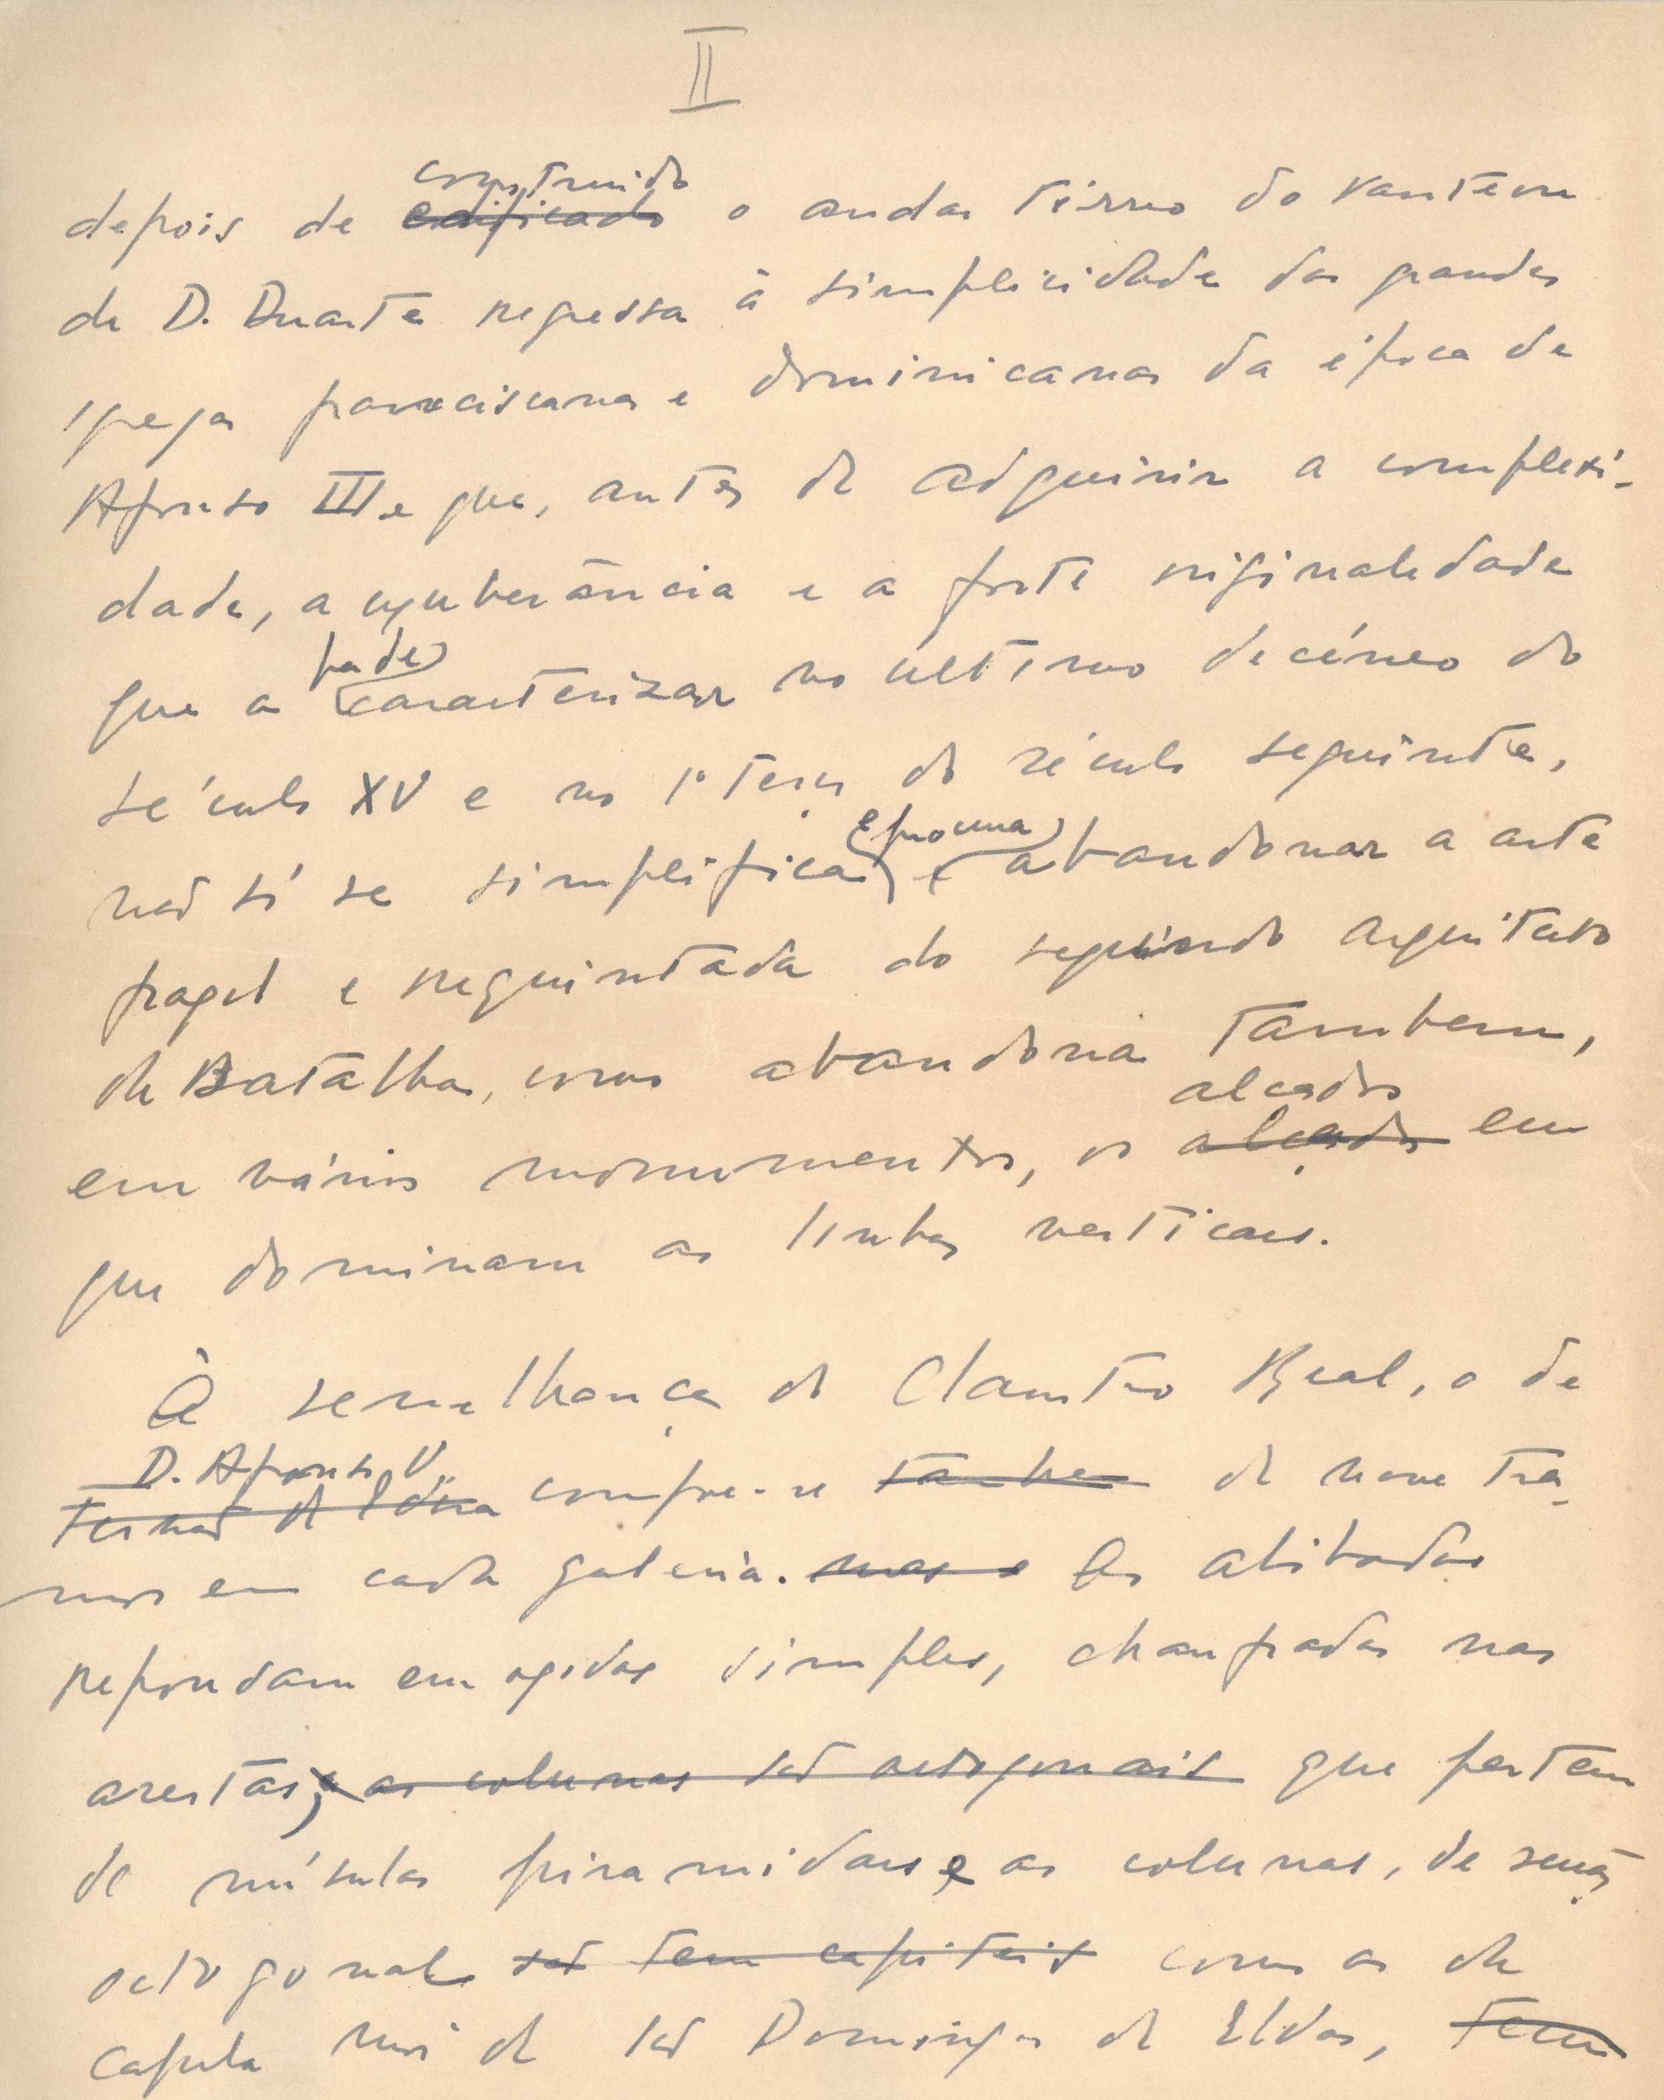 II
construido
depois de edificado o andar térreo do panteon
de D. Duarte regressa à simplicidade das grandes
igrejas franciscanas e dominicanas da época de
Afonso III e que, antes de adquirir a complexi-
dade, a exuberância e a forte originalidade
pode
que a caracterizar no ultimo decéneo do
século XV e no 1º terço do século seguinte,
não só se simplifica e procura abandonar a arte
fragil e requintada do segundo arquitecto
da Batalha, como abandona tambem,
alçados
em vários monumentos, os alçados em
que dominam as linhas verticais.
À semelhança do Claustro Real, o de
D. Afonso V
Fernão de Évora compõe-se tambem de nove tra-
mos em cada galeria. mas as As abóbadas
repousam em ogivas simples, chanfradas nas
arestas, e as colunas são octogonais que partem
de mísulas piramidais e as colunas, de secção
octogonal são tem capiteis como as da
capela mór de São Domingos de Elvas, tem